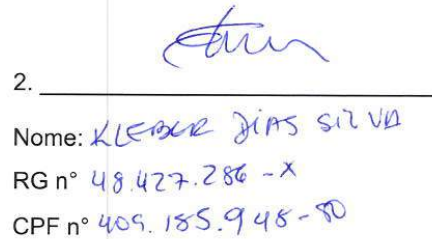 2.
Nome: KLEBER DIAS SILVA
RG n° 48.427.286-X
CPF n° 409.185.948-80